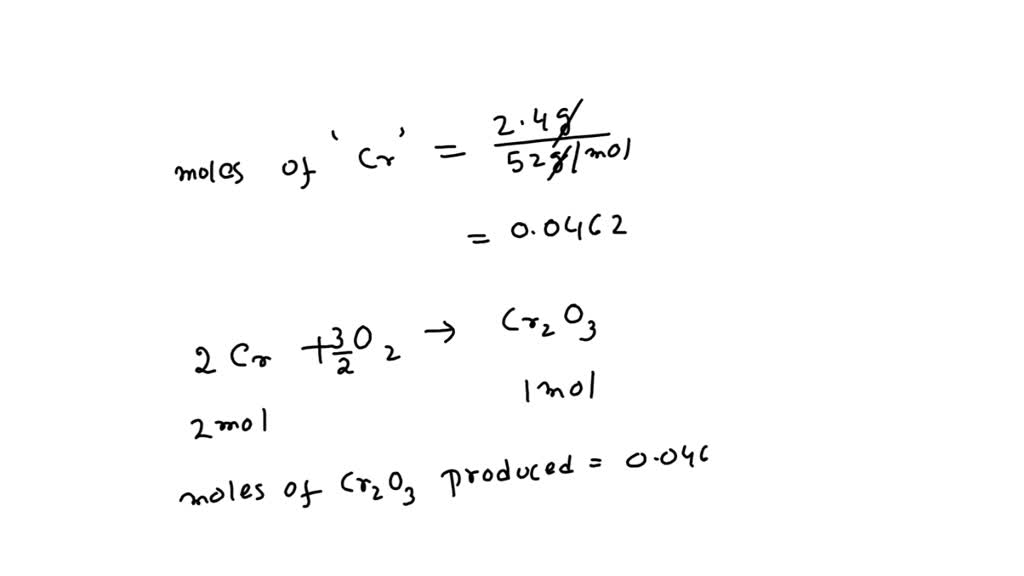 moles of 'Cr' = 2.4g / 52g/mol
= 0.0462
2 Cr + 3/2 O2 → Cr2O3
2mol 1mol
moles of Cr2O3 produced = 0.046